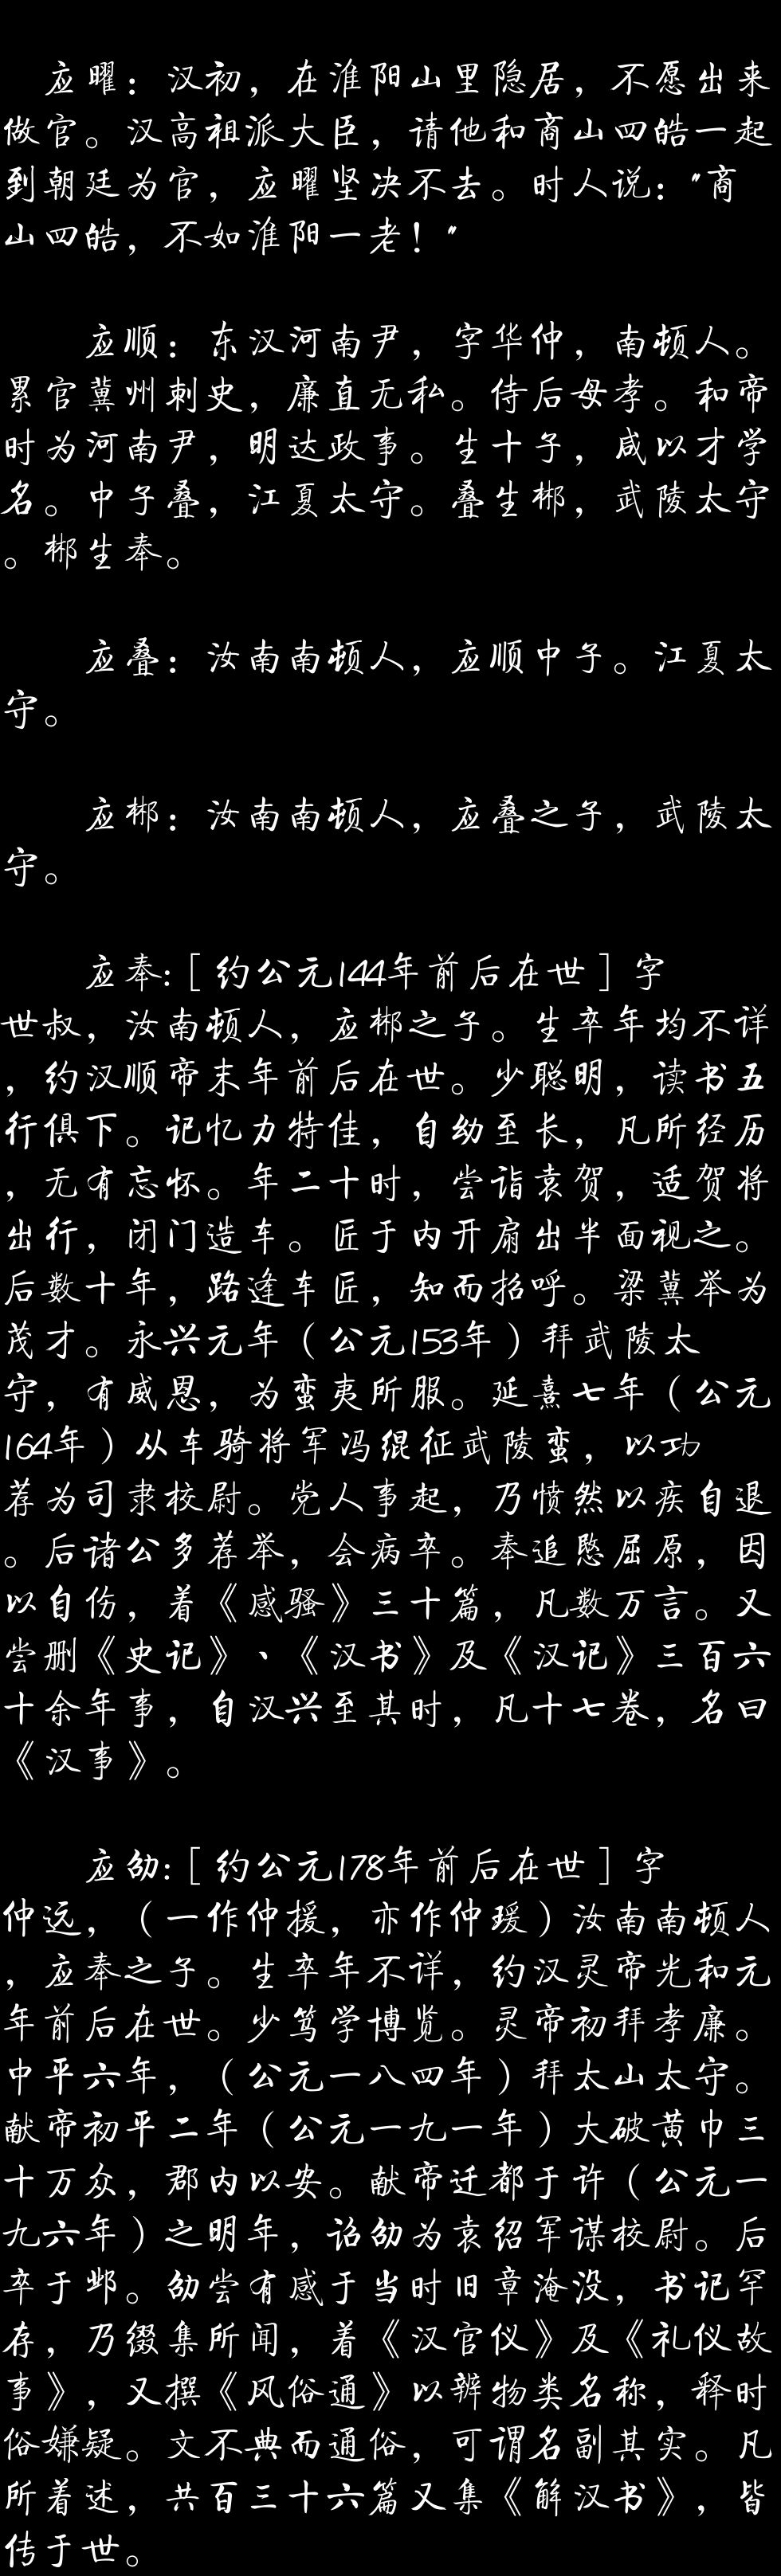 应曜：汉初，在淮阳山里隐居，不愿出来
做官。汉高祖派大臣，请他和商山四皓一起
到朝廷为官，应曜坚决不去。时人说："商
山四皓，不如淮阳一老！"
应顺：东汉河南尹，字华仲，南顿人。
累官冀州刺史，廉直无私。侍后母孝。和帝
时为河南尹，明达政事。生十子，咸以才学
名。中子叠，江夏太守。叠生郴，武陵太守
。郴生奉。
应叠：汝南南顿人，应顺中子。江夏太
守。
应郴：汝南南顿人，应叠之子，武陵太
守。
应奉:［约公元144年前后在世］字
世叔，汝南顿人，应郴之子。生卒年均不详
，约汉顺帝末年前后在世。少聪明，读书五
行俱下。记忆力特佳，自幼至长，凡所经历
，无有忘怀。年二十时，尝诣袁贺，适贺将
出行，闭门造车。匠于内开扇出半面视之。
后数十年，路逢车匠，知而招呼。梁冀举为
茂才。永兴元年（公元153年）拜武陵太
守，有威恩，为蛮夷所服。延熹七年（公元
164年）从车骑将军冯绲征武陵蛮，以功
荐为司隶校尉。党人事起，乃愤然以疾自退
。后诸公多荐举，会病卒。奉追愍屈原，因
以自伤，着《感骚》三十篇，凡数万言。又
尝删《史记》、《汉书》及《汉记》三百六
十余年事，自汉兴至其时，凡十七卷，名曰
《汉事》。
应劭:［约公元178年前后在世］字
仲远，（一作仲援，亦作仲瑗）汝南南顿人
，应奉之子。生卒年不详，约汉灵帝光和元
年前后在世。少笃学博览。灵帝初拜孝廉。
中平六年，（公元一八四年）拜太山太守。
献帝初平二年（公元一九一年）大破黄巾三
十万众，郡内以安。献帝迁都于许（公元一
九六年）之明年，诏劭为袁绍军谋校尉。后
卒于邺。劭尝有感于当时旧章淹没，书记罕
存，乃缀集所闻，着《汉官仪》及《礼仪故
事》，又撰《风俗通》以辨物类名称，释时
俗嫌疑。文不典而通俗，可谓名副其实。凡
所着述，共百三十六篇又集《解汉书》，皆
传于世。